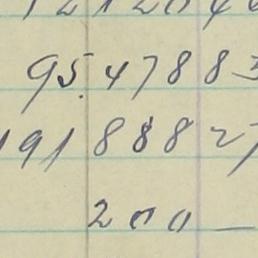 95.47883
191 888 27
200 —